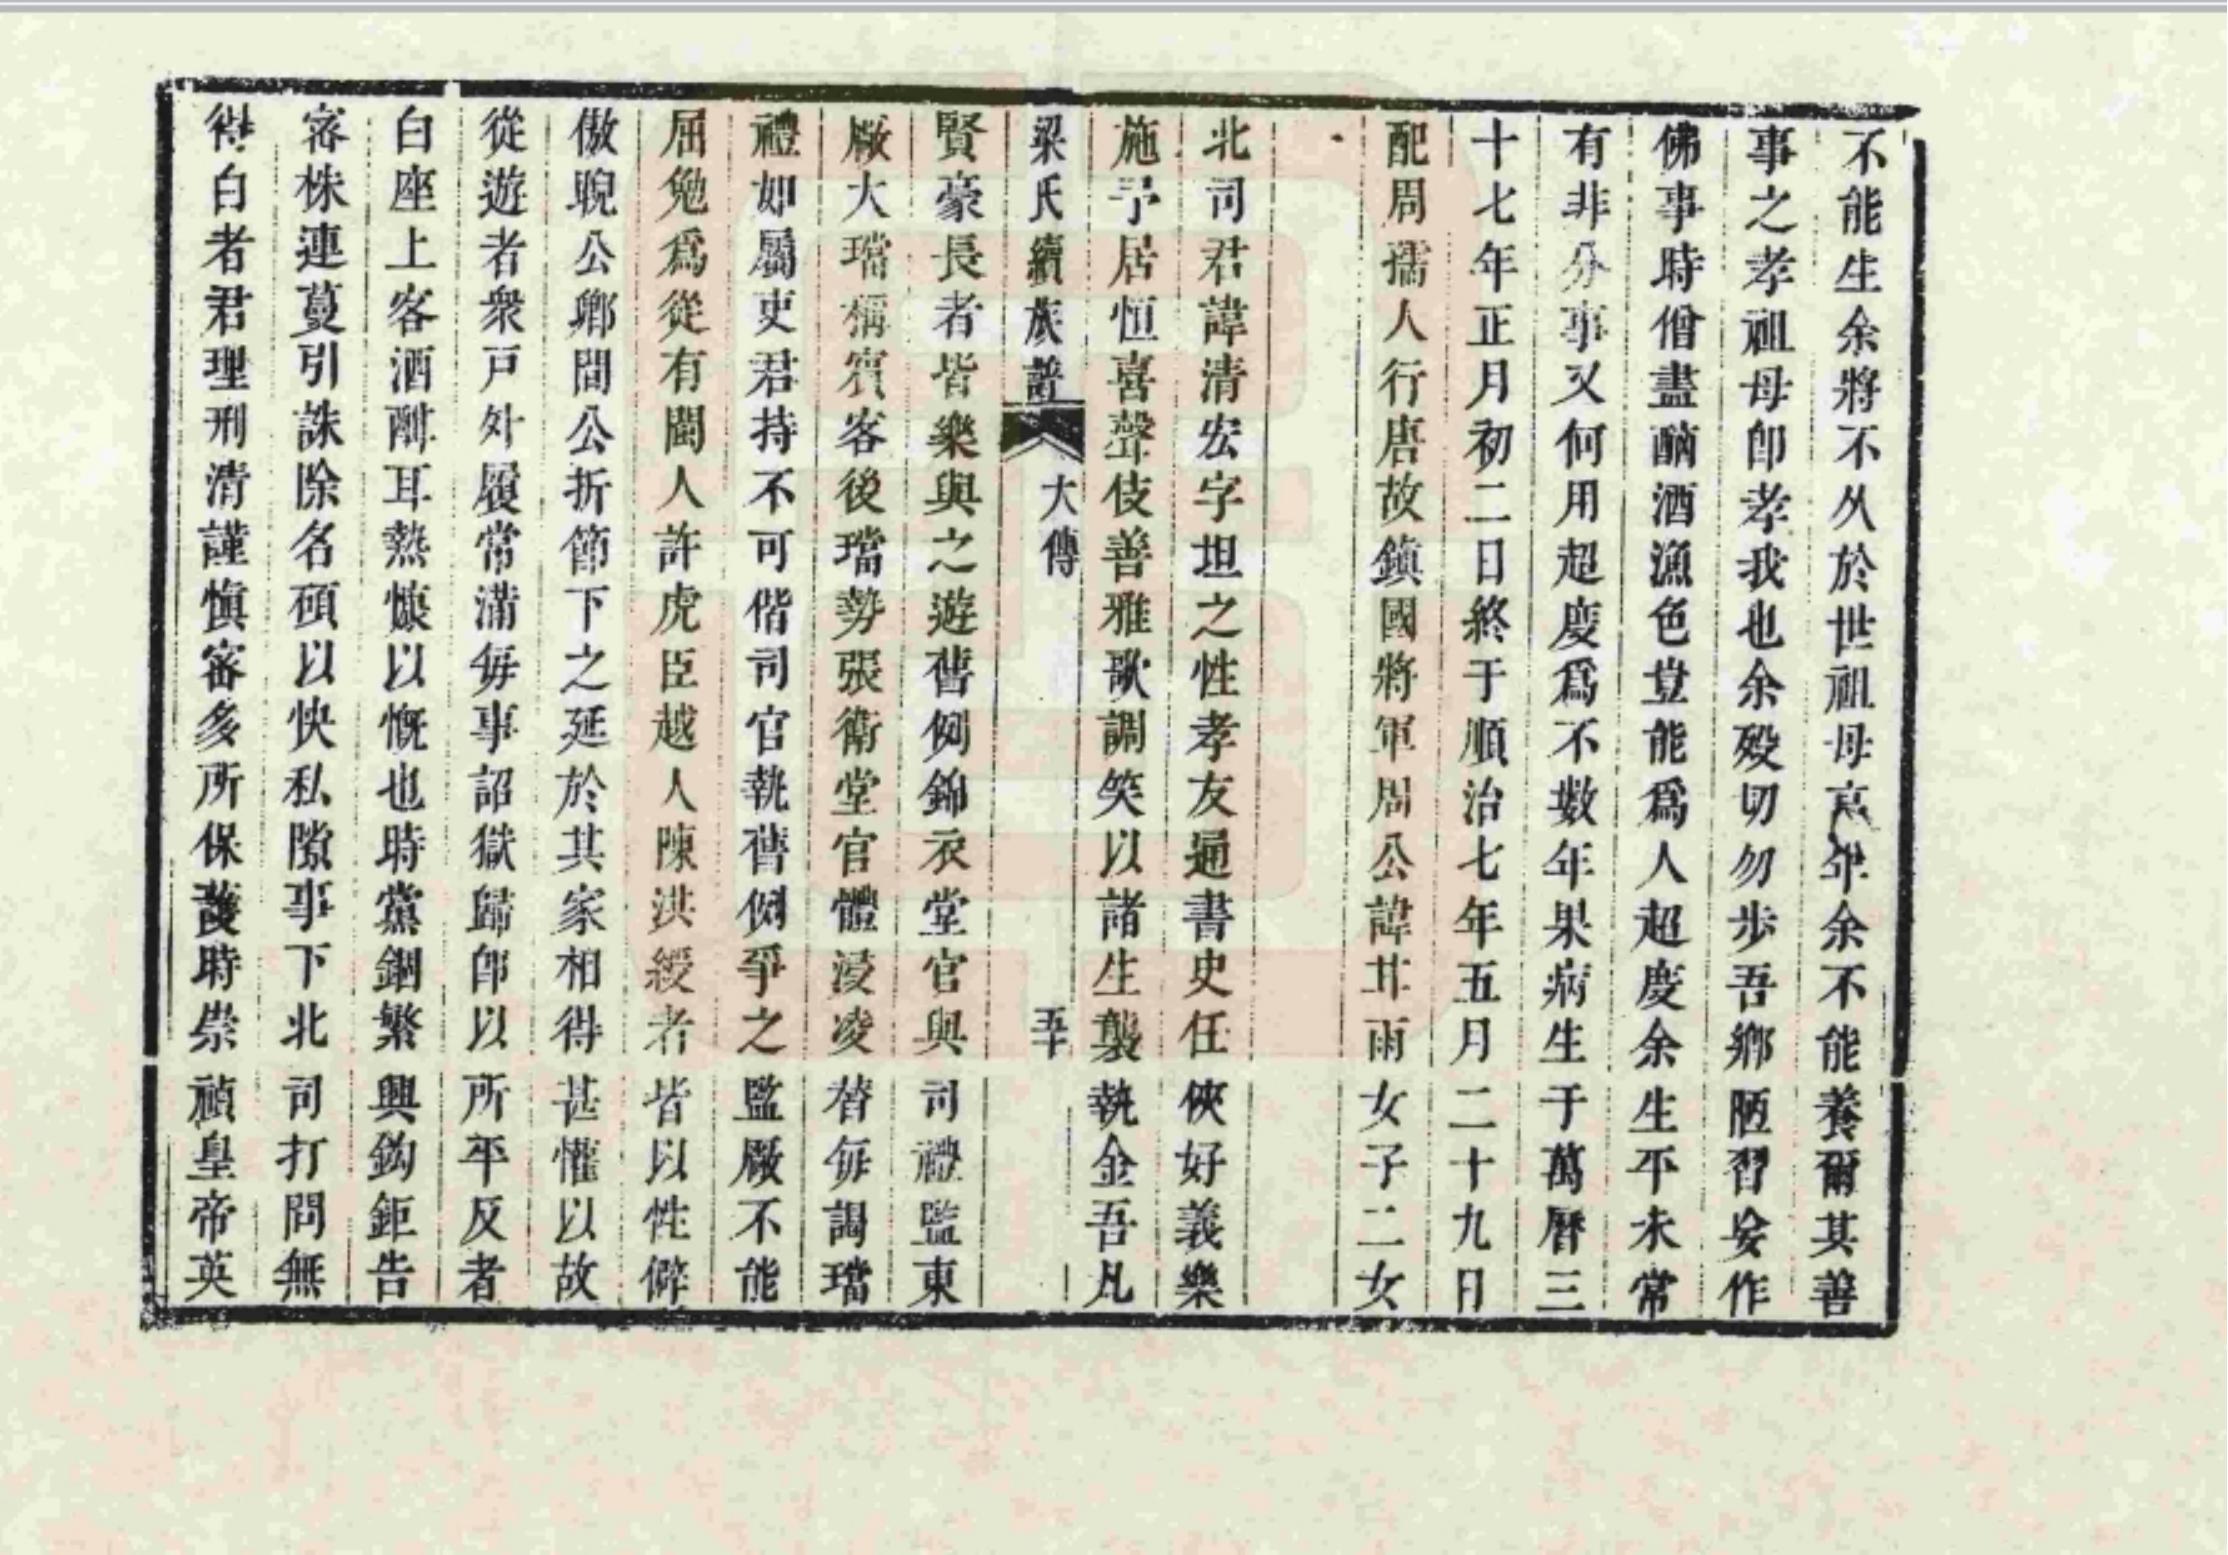 不能生余將不久於世祖母高年余不能養爾其善
事之孝祖母卽孝我也余歿切勿步吾鄉陋習妄作
佛事時僧盡酗酒漁色豈能爲人超慶余生平未常
有非分事又何用超慶爲不數年果病生于萬曆三
十七年正月初二日終于順治七年五月二十九日
配周孺人行唐故鎮國將軍周公諱甘雨女子二女
北司君諱清宏字坦之性孝友通書史任俠好義樂
施予居恒喜聲伎善雅歌調笑以諸生襲執金吾凡
梁氏續族譜 大傳 五十
賢豪長者皆樂與之遊舊例錦衣堂官與司禮監東
厰大璫稱賓客後璫勢張衛堂官體浸凌替每謁璫
禮如屬吏君持不可偕司官執舊例爭之監厰不能
屈勉爲從有閩人許虎臣越人陳洪綬者皆以性僻
傲睨公鄉間公折節下之延於其家相得甚懽以故
從遊者衆戶外履常滿每事詔獄歸卽以所平反者
白座上客酒酣耳熱慷以慨也時黨錮繁興鈎鉅告
密株連蔓引誅除名碩以快私隙事下北司打問無
得白者君理刑清謹愼審多所保護時崇禎皇帝英